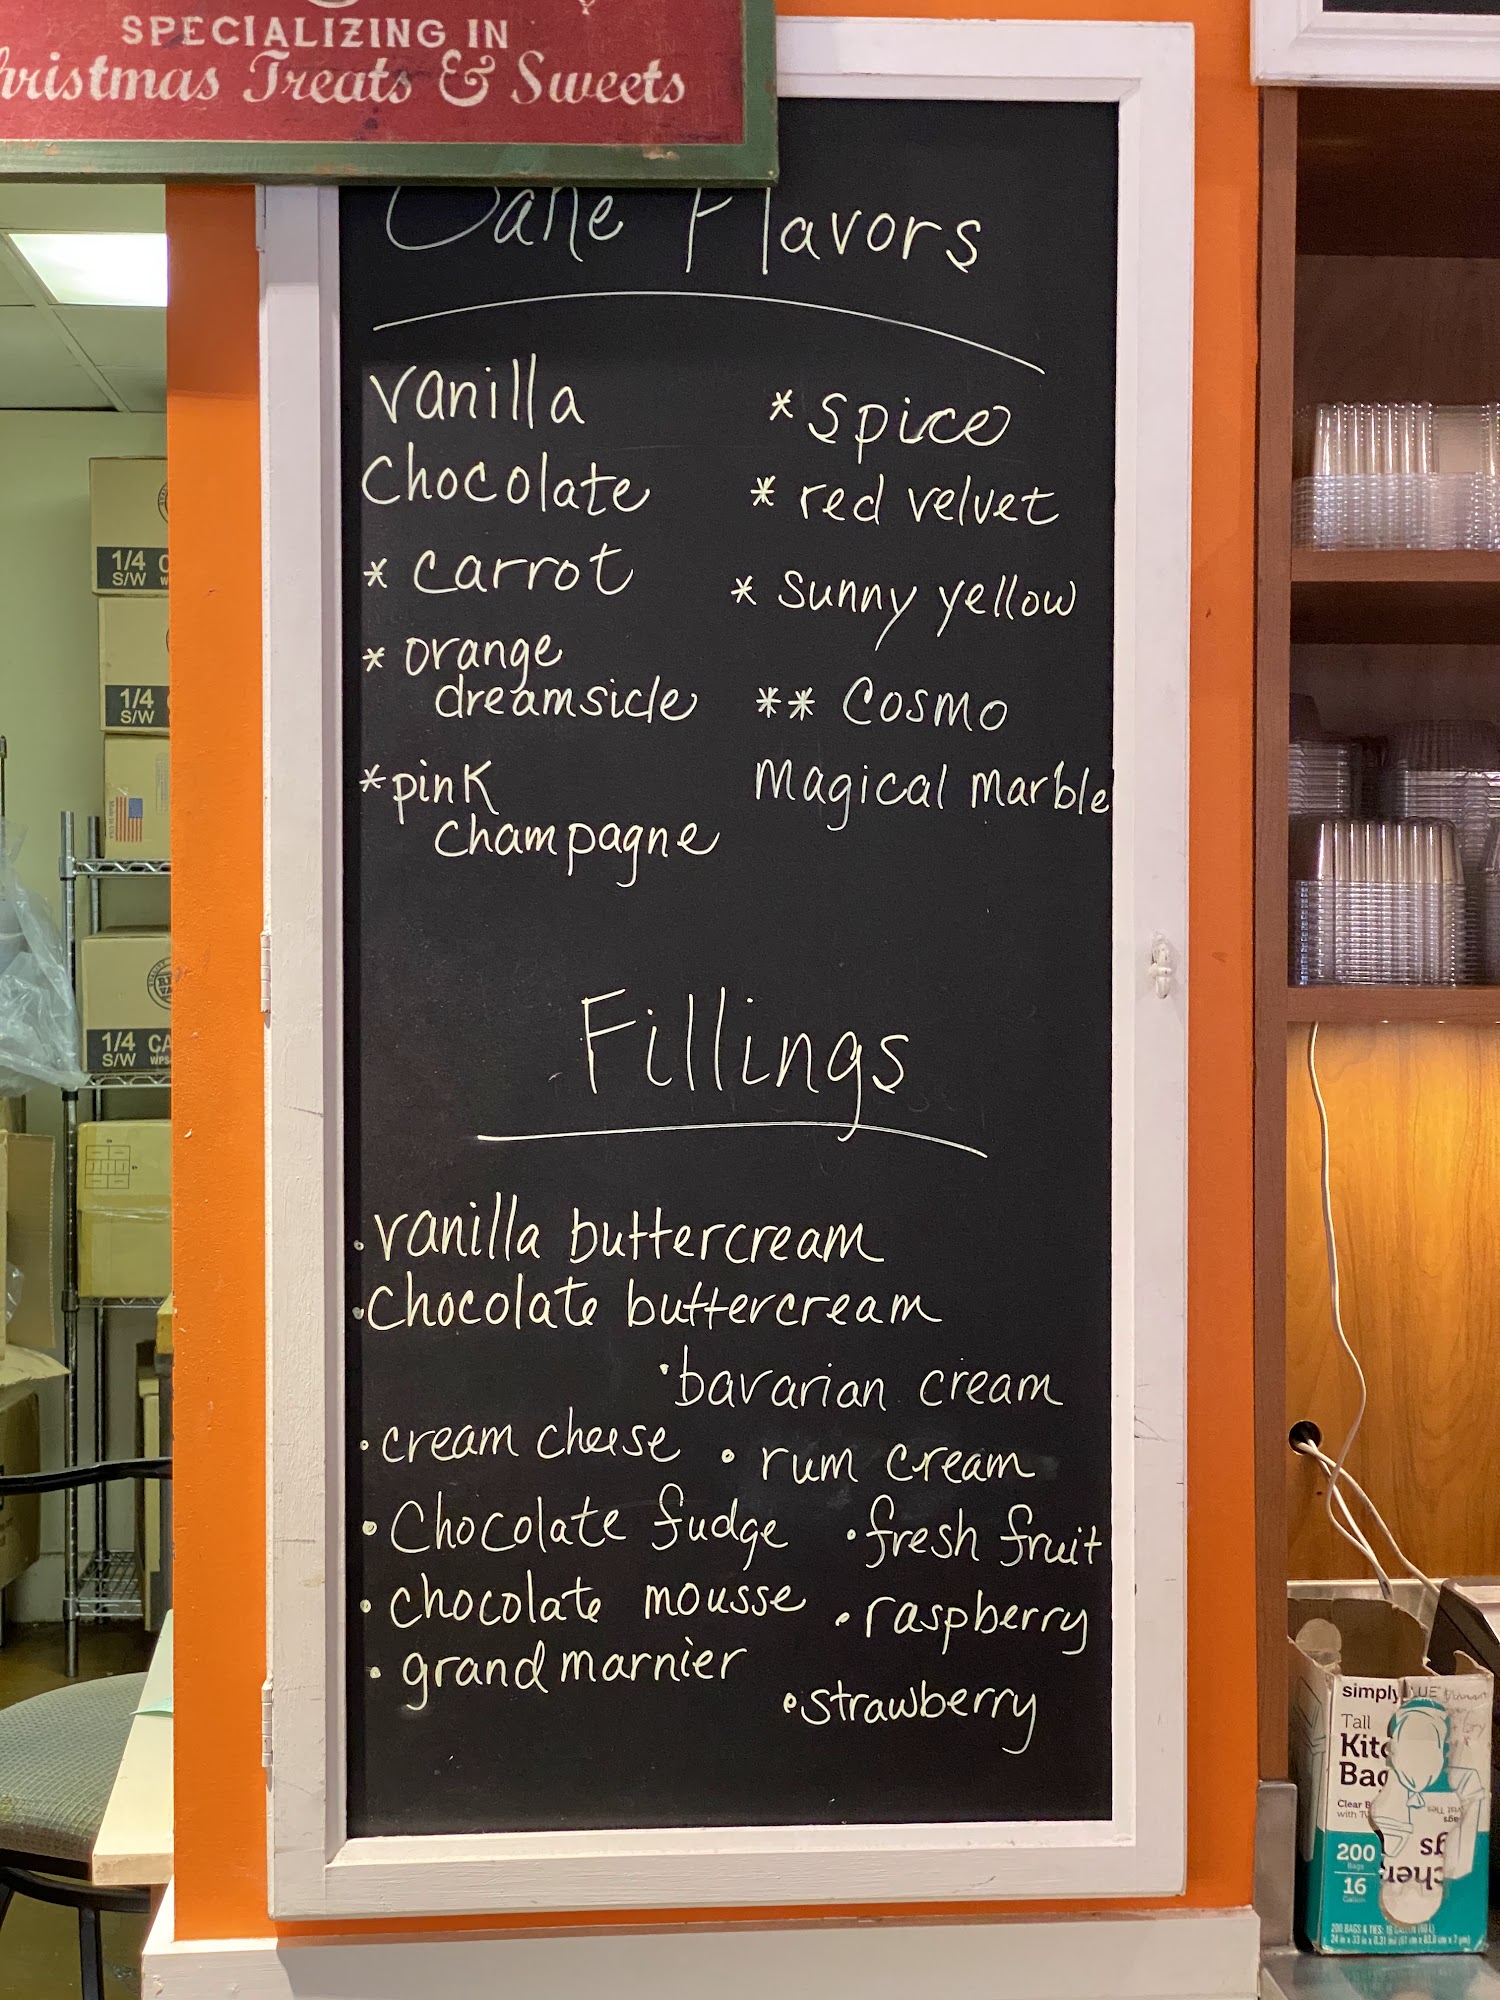 SPECIALIZING IN
Christmas Treats & Sweets
Cake Flavors
vanilla
Chocolate
* carrot
* orange
dreamsicle
* pink
champagne
* spice
* red velvet
* sunny yellow
** Cosmo
magical marble
Fillings
• vanilla buttercream
• Chocolate buttercream
• bavarian cream
• cream cheese
• rum cream
• Chocolate fudge
• fresh fruit
• chocolate mousse
• raspberry
• grand marnier
• strawberry
1/4
S/W
1/4
S/W
1/4 CA
S/W
simply
Tall
Kitc
Bag
200
Bags
16
Gallon